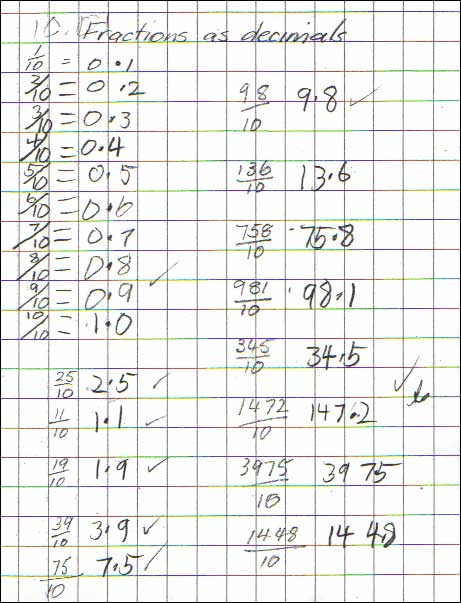 10. Fractions as decimals
1/10 = 0.1
2/10 = 0.2
3/10 = 0.3
4/10 = 0.4
5/10 = 0.5
6/10 = 0.6
7/10 = 0.7
8/10 = 0.8
9/10 = 0.9
10/10 = 1.0
25/10 2.5
11/10 1.1
19/10 1.9
39/10 3.9
75/10 7.5
98/10 9.8
136/10 13.6
758/10 75.8
981/10 98.1
345/10 34.5
1472/10 147.2
3975/10 39 75
1448/10 14 48